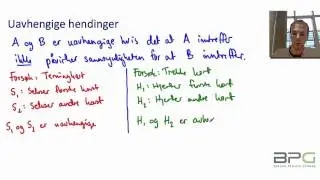 Uavhengige hendinger
A og B er uavhengige hvis det at A inntreffer
ikke påvirker sannsynligheten for at B inntreffer.
Forsøk: Terningkast
S₁: Sekser første kast
S₂: Sekser andre kast
S₁ og S₂ er uavhengige
Forsøk: Trekke kort
H₁: Hjerter første kort
H₂: Hjerter andre kort
H₁ og H₂ er avhen
BPG